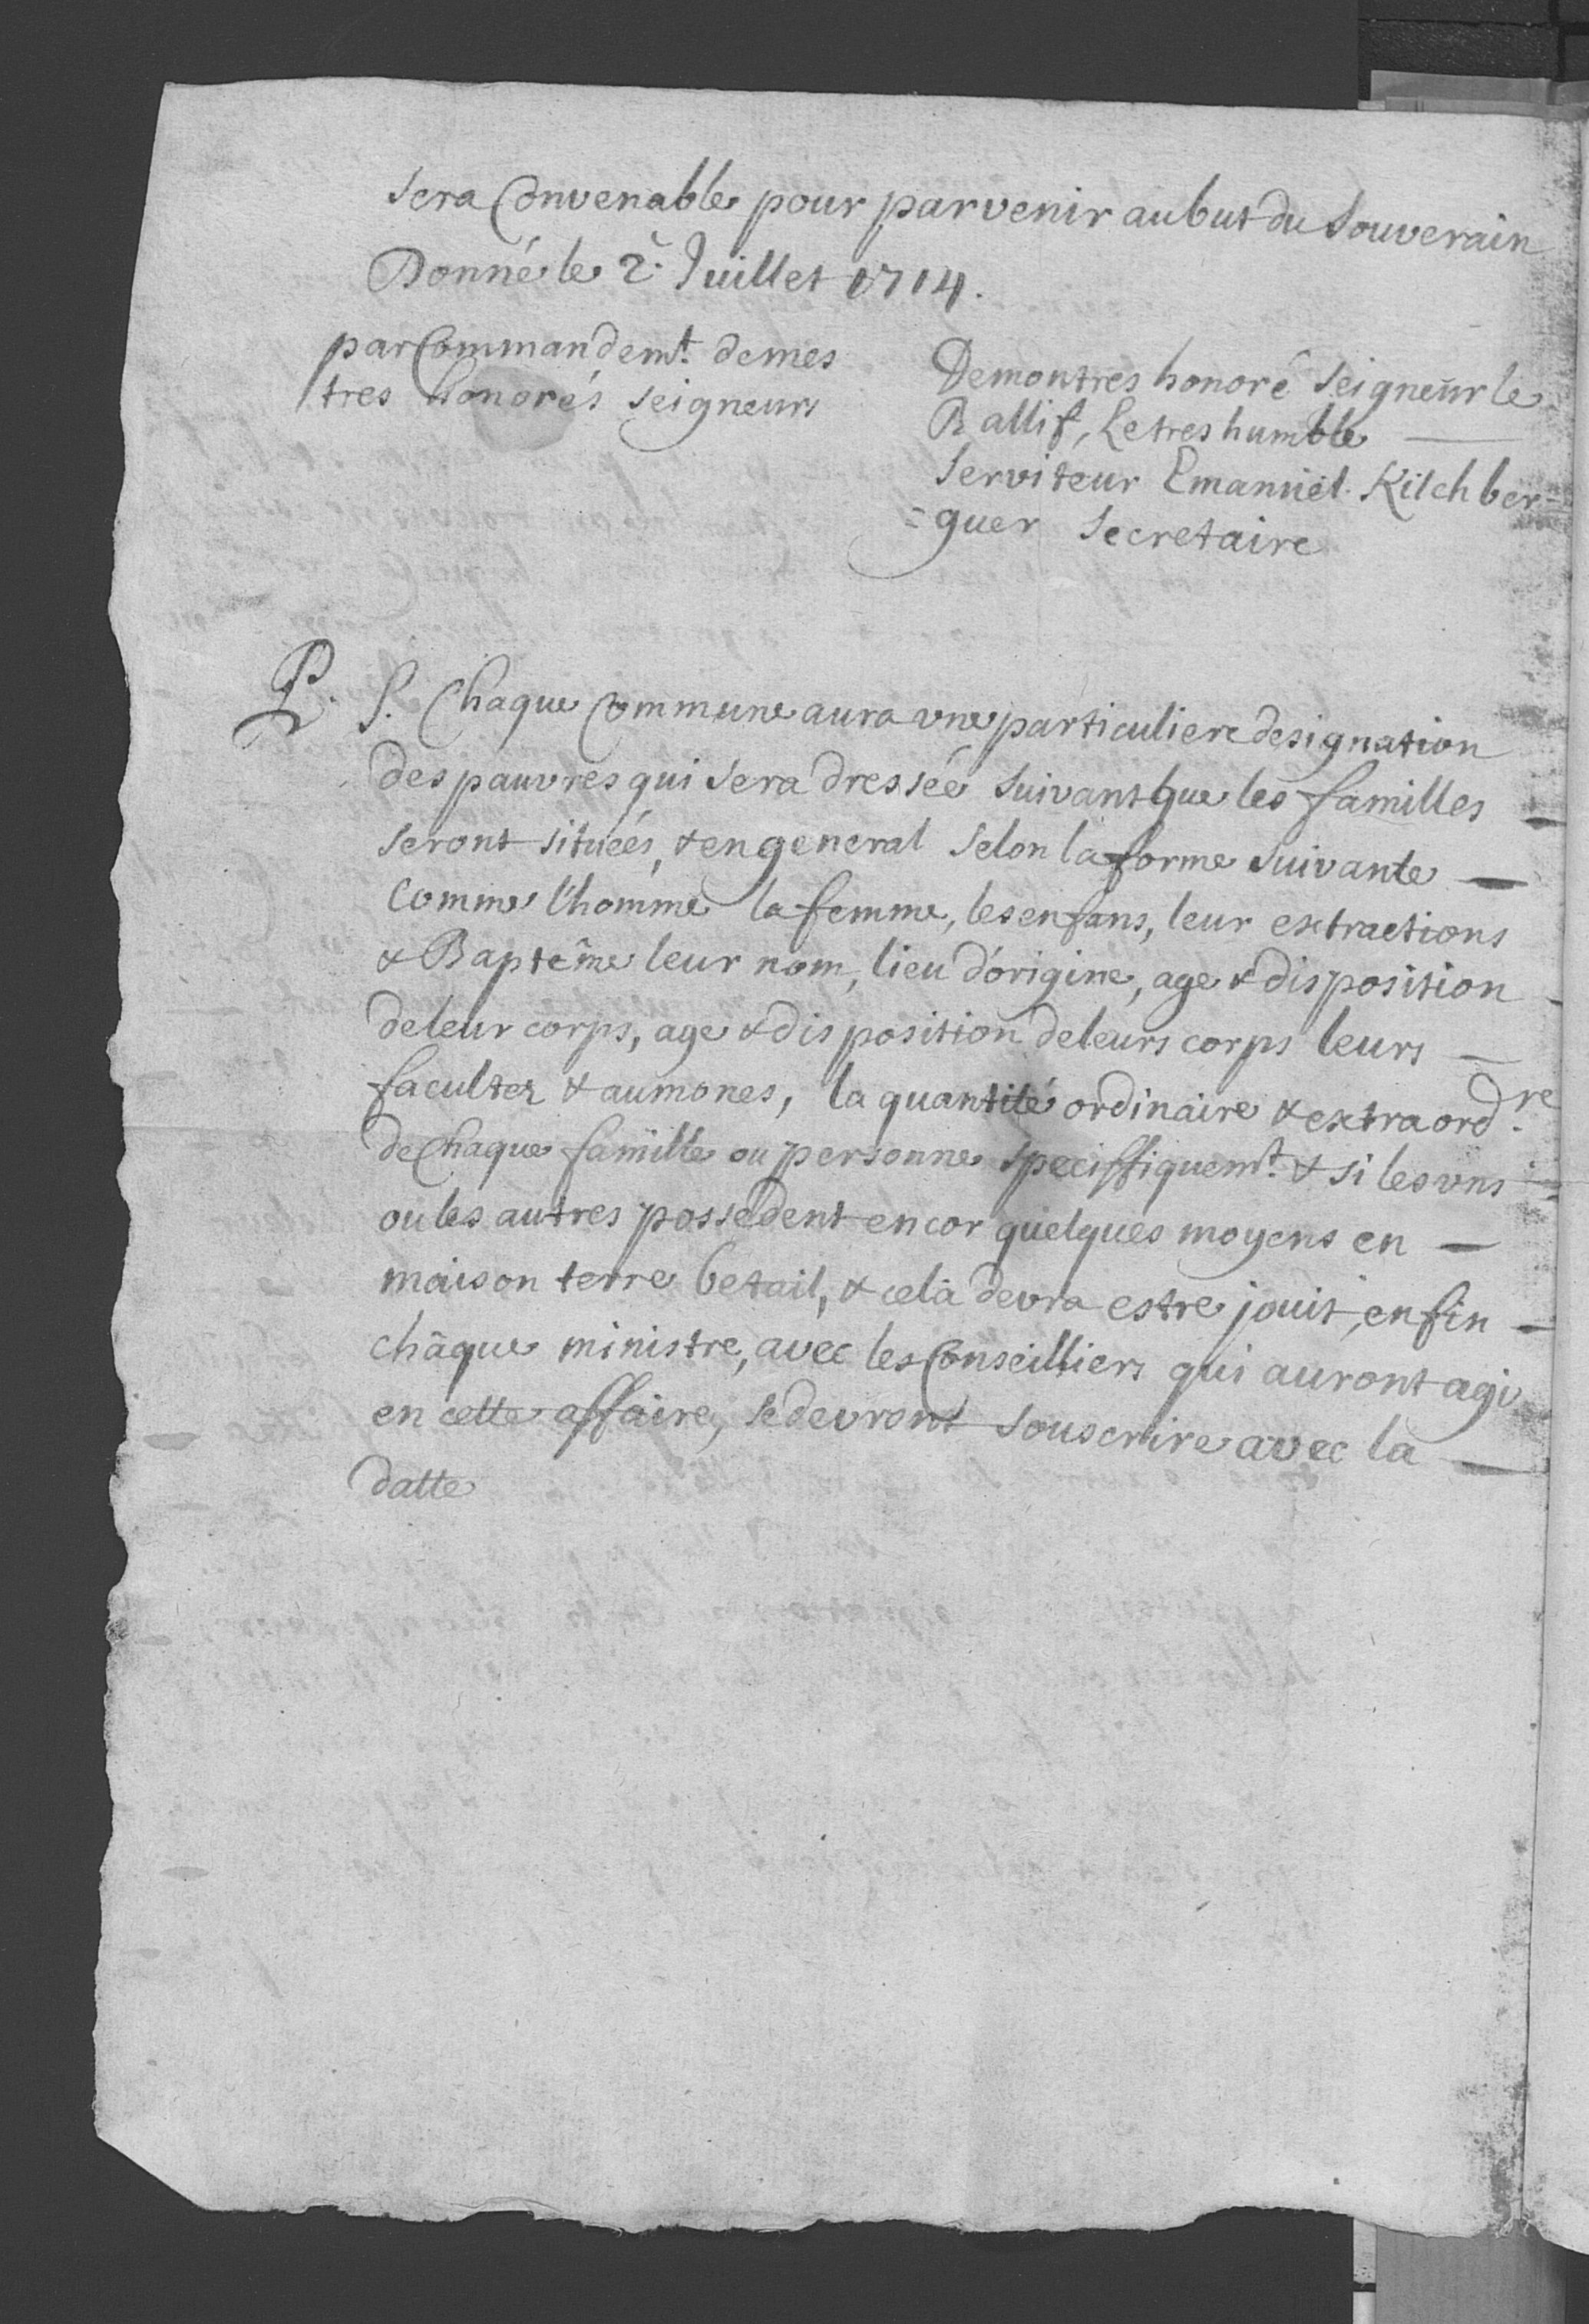 sera Convenable pour parvenir au but du Souverain
Donné le 2.e Juillet 1714.
par Commandemt. de mes
tres honorés seigneurs
De mon tres honoré Seigneur le
Ballif, Le tres humble
Serviteur Emanuel Kilchber=
=guer Secretaire
P. S. Chaque Commune aura vne particuliere designation
des pauvres qui sera dressée suivant que les familles
seront situées, & en general selon la forme suivante
Comme l'homme la femme, les enfans, leur extractions
& Baptême leur nom, lieu d'origine, age & disposition
de leur corps, age & disposition de leurs corps leurs
facultez & aumones, la quantité ordinaire & extraord.re
de Chaque famille ou personne speciffiquemt. & si les vns
ou les autres possedent encor quelques moyens en
maison terre betail, & celà devra estre jouit, enfin
châque ministre, avec les Conseilliers qui auront agi
en cette affaire, se devront souscrire avec la
datte